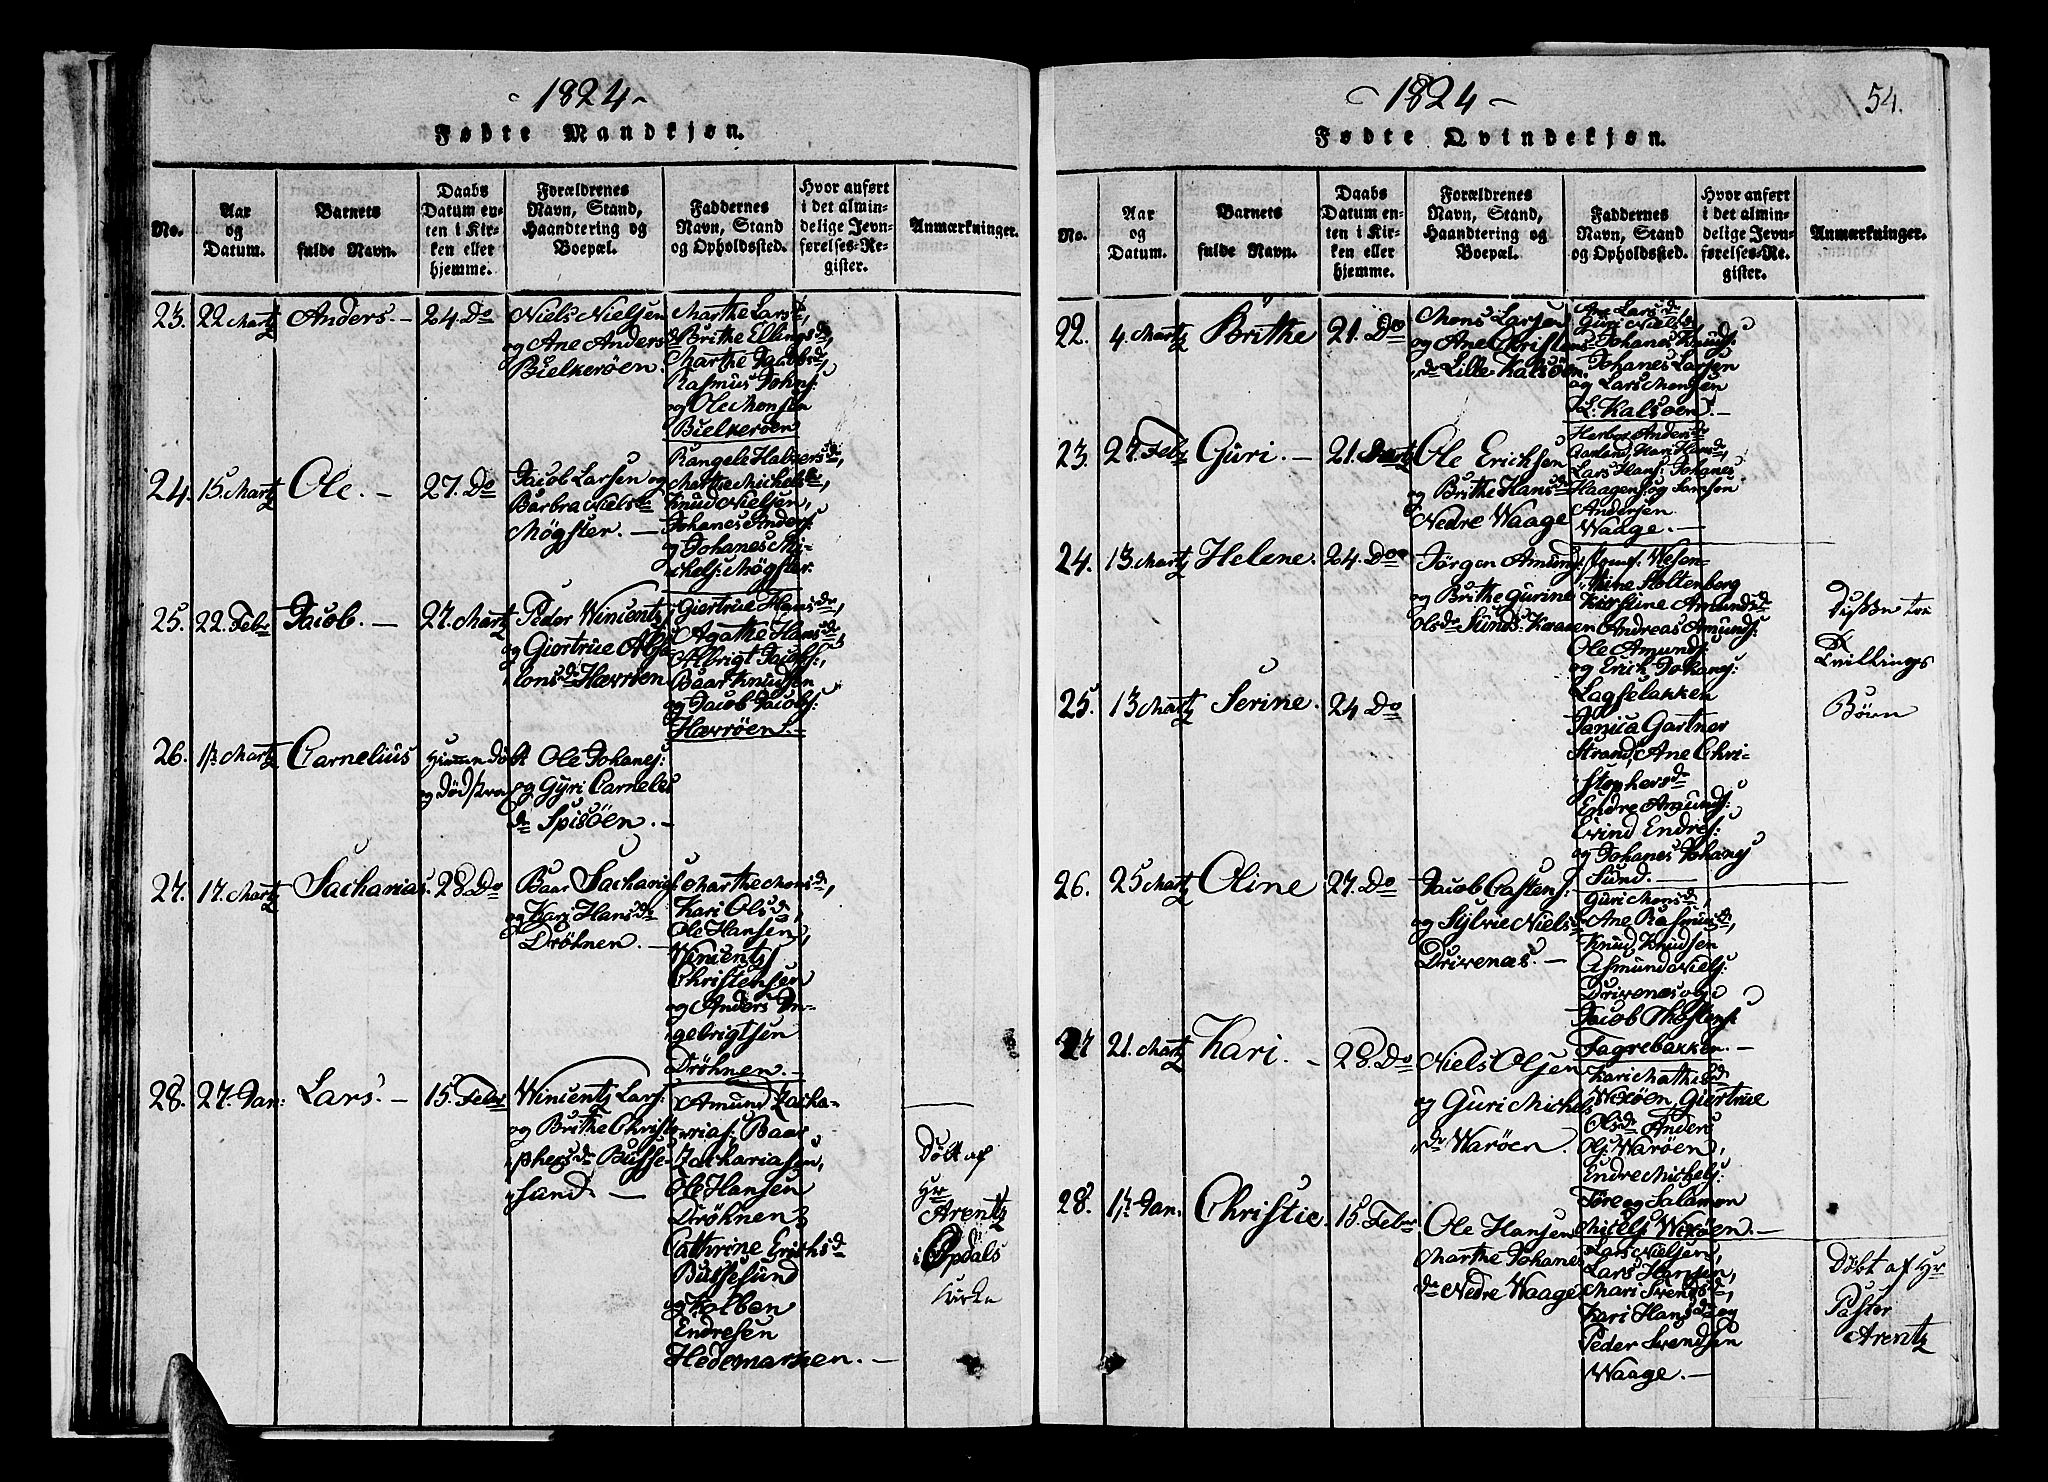 1824
Fødte Mandkjøn.
No.
Aar
og
Datum.
Barnets
fulde Navn.
Daabs
Datum en-
ten i Kir-
ken eller
hjemme.
Forældrenes
Navn, Stand,
Haandtering og
Boepæl.
Faddernes
Navn, Stand
og Opholdssted.
Hvor anført
i det almin-
delige Jevn-
førelses-Re-
gister.
Anmærkninger.
23. 22 Martz Anders 24. Do
Niels Nielsen
og Ane Anders
Bielkerøen.
Marthe Larsd,
Brithe Ellingsd,
Marthe Jacobsd,
Rasmus Johns:
og Ole Monsen
Bielkerøen
24. 15. Martz Ole. 27. Do
Jacob Larsen og
Barbra Nielsd
Møgster.
Rangele Halversd,
Marthe Michelsd,
Knud Nielsen,
Johanes Anders:
og Johanes Mi-
chels: Møgster
25. 22. Febr Jacob. 27. Martz
Peder Wincentz
og Giertrue Abse-
lonsd Hævrøen
Giertrue Hansd,
Agathe Hansd,
Albrigt Jacobs:,
Baar Knudsen
og Jacob Jacobs:
Hævrøen.
26. Martz Carnelius Hiemmedøbt
og død strax
Ole Johanes:
og Gyri Carneles
d Spisøen.
27. 17. Martz Sacharias. 28. Do
Baar Sacharies
og Kari Hansd
Drøhnen.
Marthe Monsd,
Kari Olsd,
Ole Hansen,
Wincentz
Christensen
og Anders In-
gebrigtsen
Drøhnen.
28. 27. Jan: Lars. 15. Febr
Wincentz Lars:
og Brithe Christo
phersd Busse-
sund.
Amund Zacha-
rias:, Baar
Zachariasen,
Ole Hansen
Drøhnen,
Cathrine Erichsd
Bussesund
og Kolben
Endresen
Hedemarken.
Døbt af
Hr
Arentz
i Opdals
Kirke
1824
54.
Fødte Qvindekjøn.
No.
Aar
og
Datum.
Barnets
fulde Navn.
Daabs
Datum en-
ten i Kir-
ken eller
hjemme.
Forældrenes
Navn, Stand,
Haandtering og
Boepæl.
Faddernes
Navn, Stand
og Opholdssted.
Hvor anført
i det almin-
delige Jevn-
førelses-Re-
gister.
Anmærkninger.
22. 4. Martz Brithe 21. Do
Mons Larsen
og Ane Christens
d Lille Kalsøen.
Ane Larsd,
Guri Nielsd,
Johanes Knuds:
Johanes Larsen
og Lars Monsen
L: Kalsøen.
23. 27. Febr Guri. 21. Martz
Ole Ericksen
og Brithe Hansd
Nedre Waage
Herbor Andersd
Aarland, Kari Hansd,
Lars Hans: Johanes
Haagens: og Samson
Andersen
Waage.
24. 13. Martz Helene. 24. Do
Jørgen Amunds:
og Brithe Gurine
Olsd Sunds:
Stoltenberg
Kirstine Amundsd
Andreas Amunds:
Ole Amunds:
og Erick Johanes:
Lagselakken
Disse ere
Tvillings
Børn
25. 13 Martz Serine. 24 Do
Janica Gartner
Strand, Ane Chri-
stophersd
Endre Amunds:
Erind Endres:
og Johanes Johanes
Sund.
26. 25 Martz Oline 27. Do
Jacob Carstens:
og Sylvie Nielsd
Drivenæs.
Guri Monsd,
Ane Rasmusd,
Knud Knudsen
Asmund Niels:
Drivenæs og
Jacob Thostens:
Fagrebakken.
27 21. Martz Kari. 28. Do
Niels Olsen
og Guri Michels
d Warøen.
Kari Mathisd
Wexøen, Giertrue
Olsd Anders
Ols: Warøen,
Endre Michels:
Føre og Salamon
Michels: Wexøen.
28. Jan. Christie. 15. Febr
Ole Hansen
Marthe Johanes
d Nedre Waage
Lars Nielsen,
Lars Hansen,
Mari Svendsd,
Kari Hansd og
Peder Svendsen
Waage.
Døbt af Hr
Pastor
Arentz